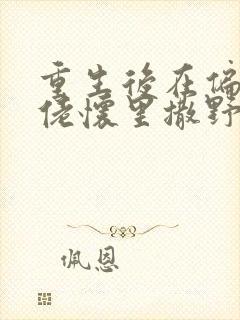 重生後在偏
佬懷里撒野
佩恩